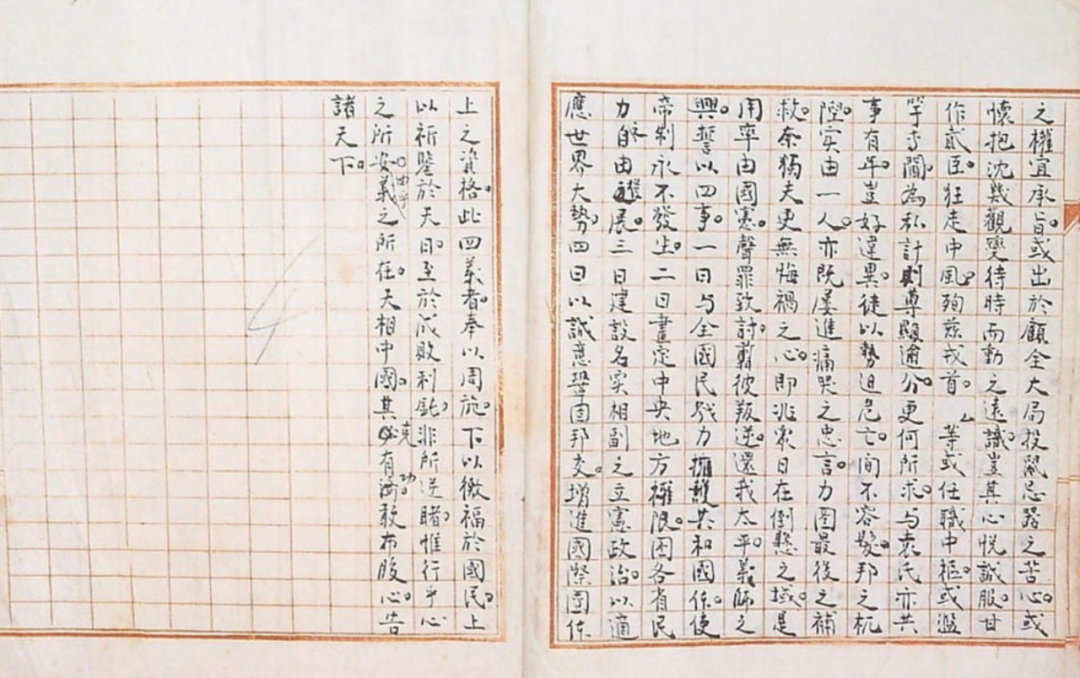 之權宜承旨。或出於顧全大局投鼠忌器之苦心。或
懷抱沈幾觀變待時而動之遠識。豈其心悅誠服。甘
作貳臣。狂走中風殉茲戎首。厶等或任職中樞。或濫
竽專閫。為私計則尊顯逾分。更何所求。与袁氏亦共
事有年。豈好違異。徒以勢迫危亡。间不容髮。邦之杌
隉。实由一人。亦既屢進痛哭之忠言。力圖最後之補
救。奈獨夫更無悔禍之心。即兆眾日在倒懸之域。是
用率由國憲。聲罪致討。翦彼叛逆。還我太平。義師之
興。誓以四事。一曰与全國民戮力擁護共和國体。使
帝制永不發生。二曰畫定中央地方權限。图各省民
力自由展。三曰建設名实相副之立憲政治。以適
應世界大勢。四曰以誠意鞏固邦交。增進國際團体
上之資格。此四義者。奉以周旋。下以徼福於國民。上
以祈鑒於天日。至於成敗利鈍。非所逆睹。惟行乎心
之所安。由乎義之所在。天相中國。其克有功。敢布腹心。告
諸天下。